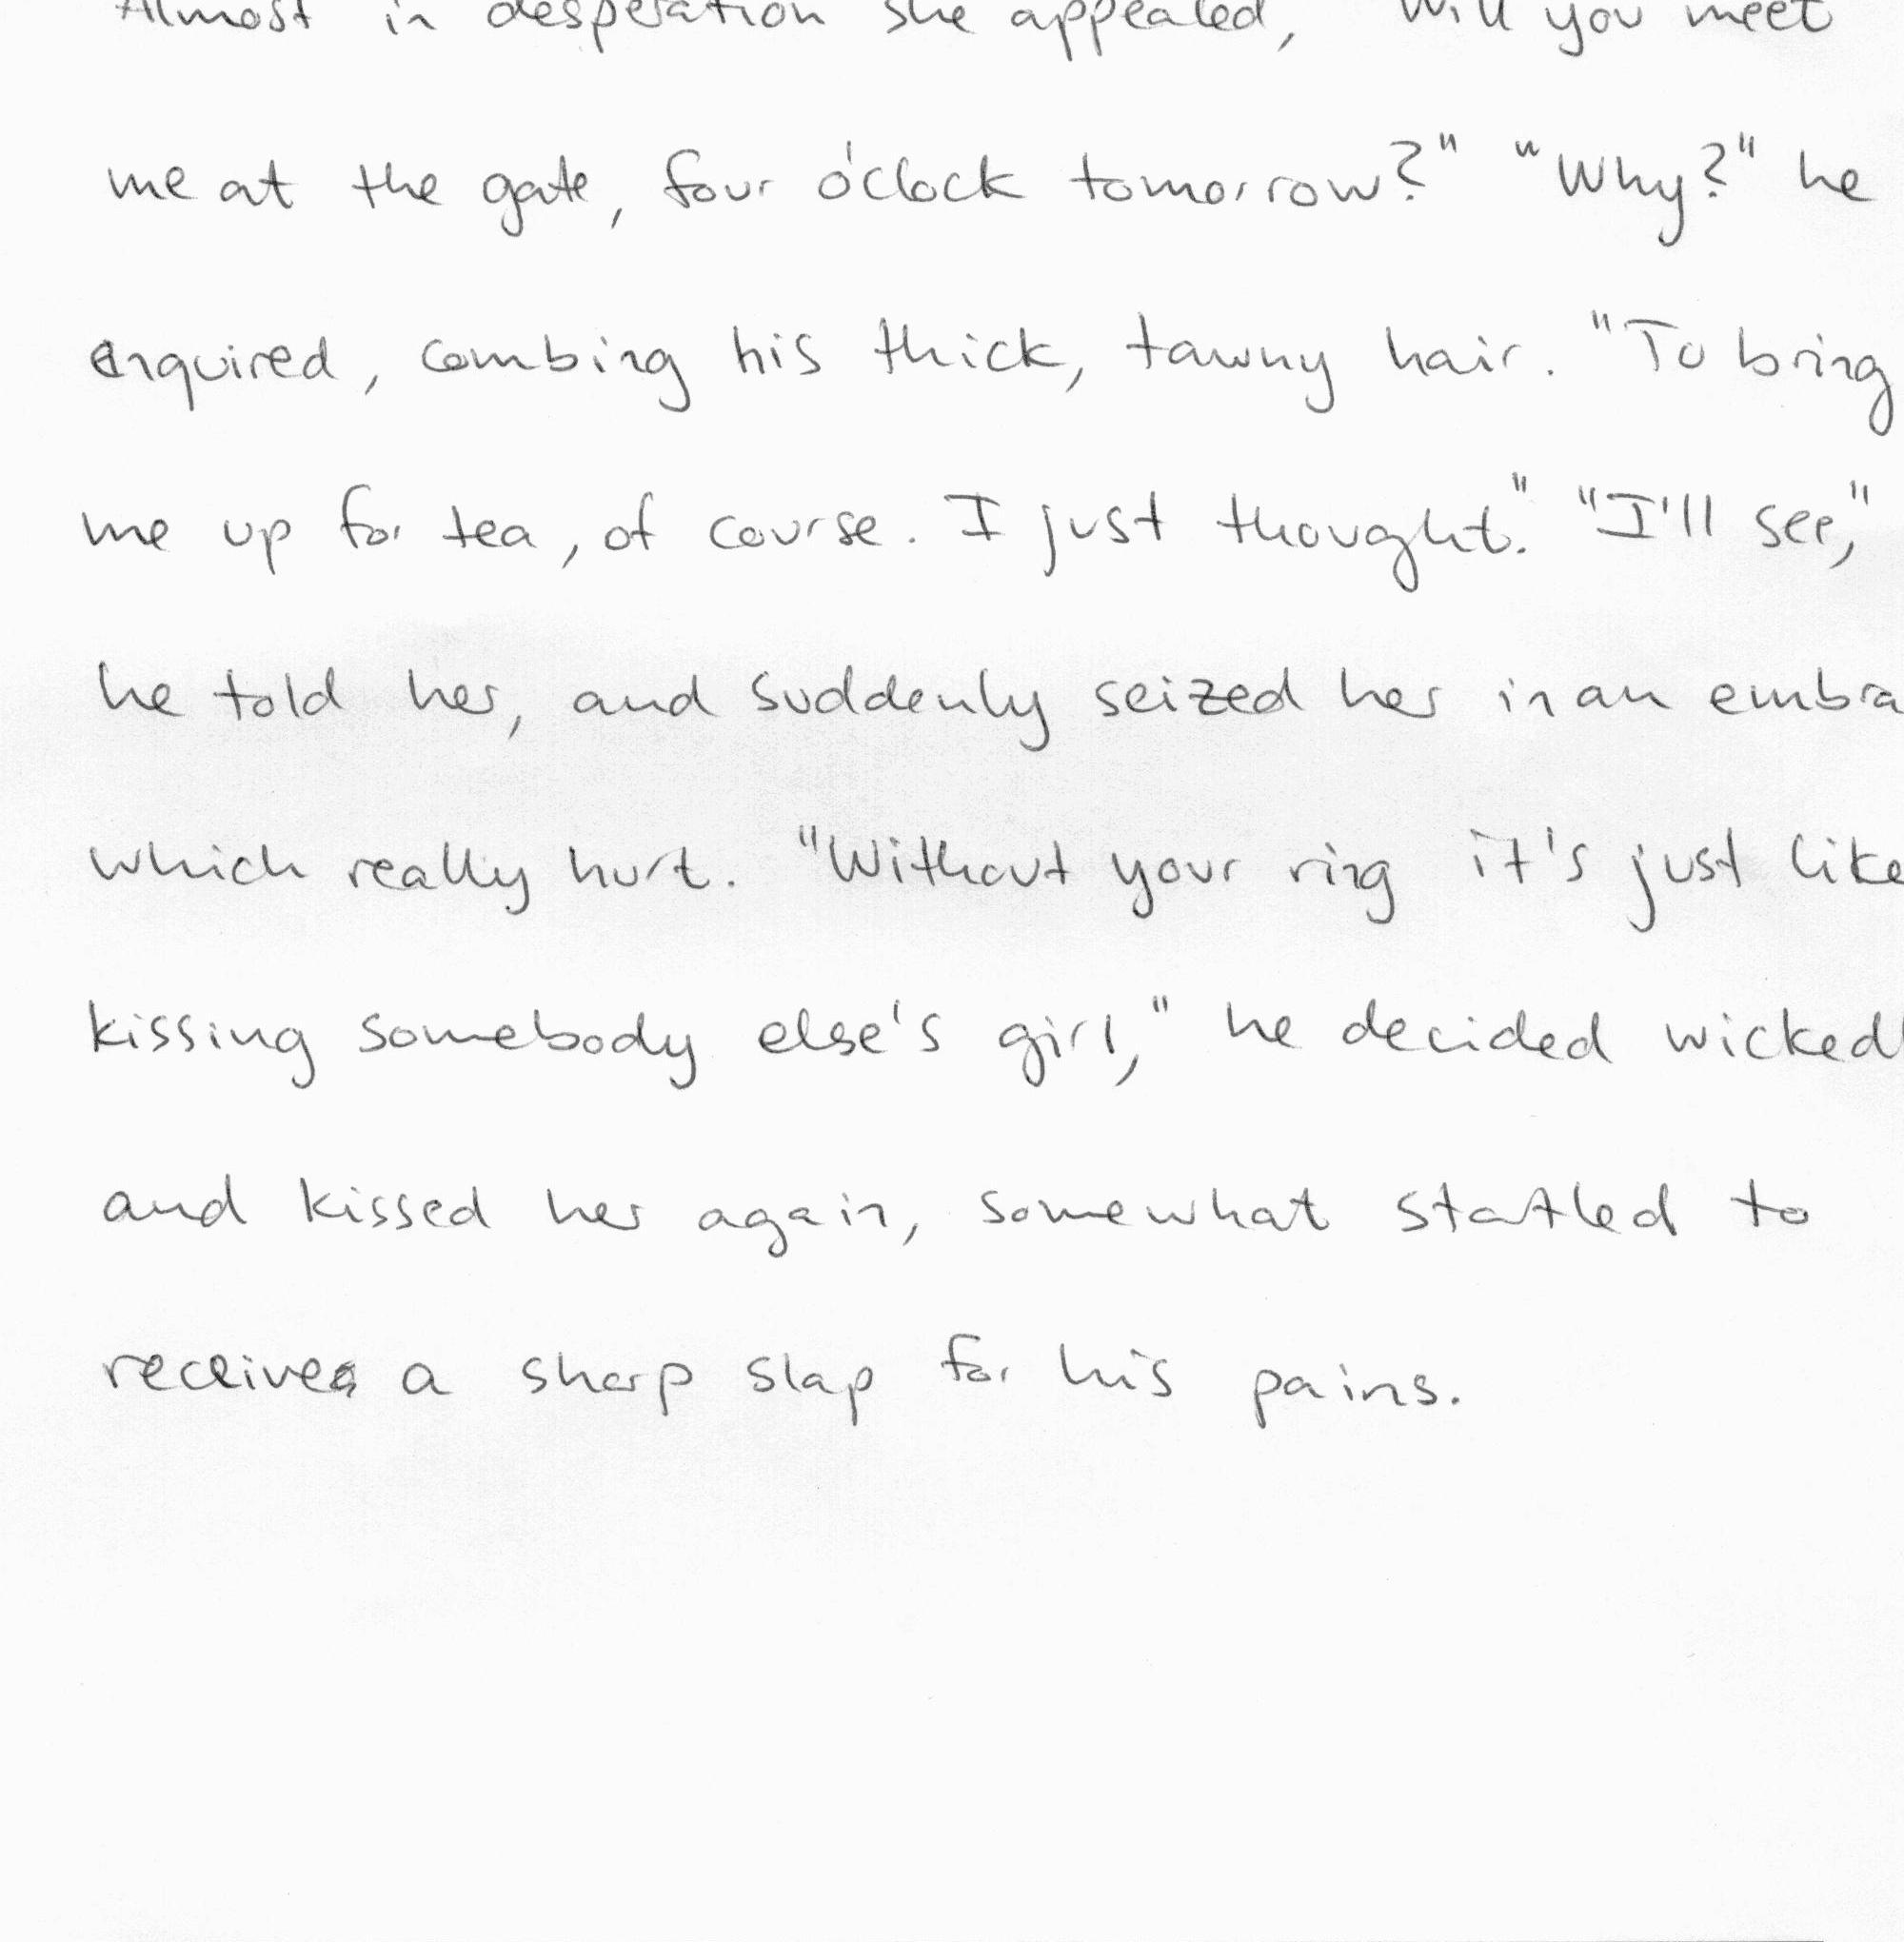 Almost in desperation she appealed, Will you meet
me at the gate, four o'clock tomorrow?" "Why?" he
enquired, combing his thick, tawny hair. "To bring
me up for tea, of course. I just thought." "I'll see,"
he told her, and suddenly seized her in an embra
which really hurt. "Without your ring it's just like
kissing somebody else's girl," he decided wickedl
and kissed her again, somewhat startled to
receive a sharp slap for his pains.